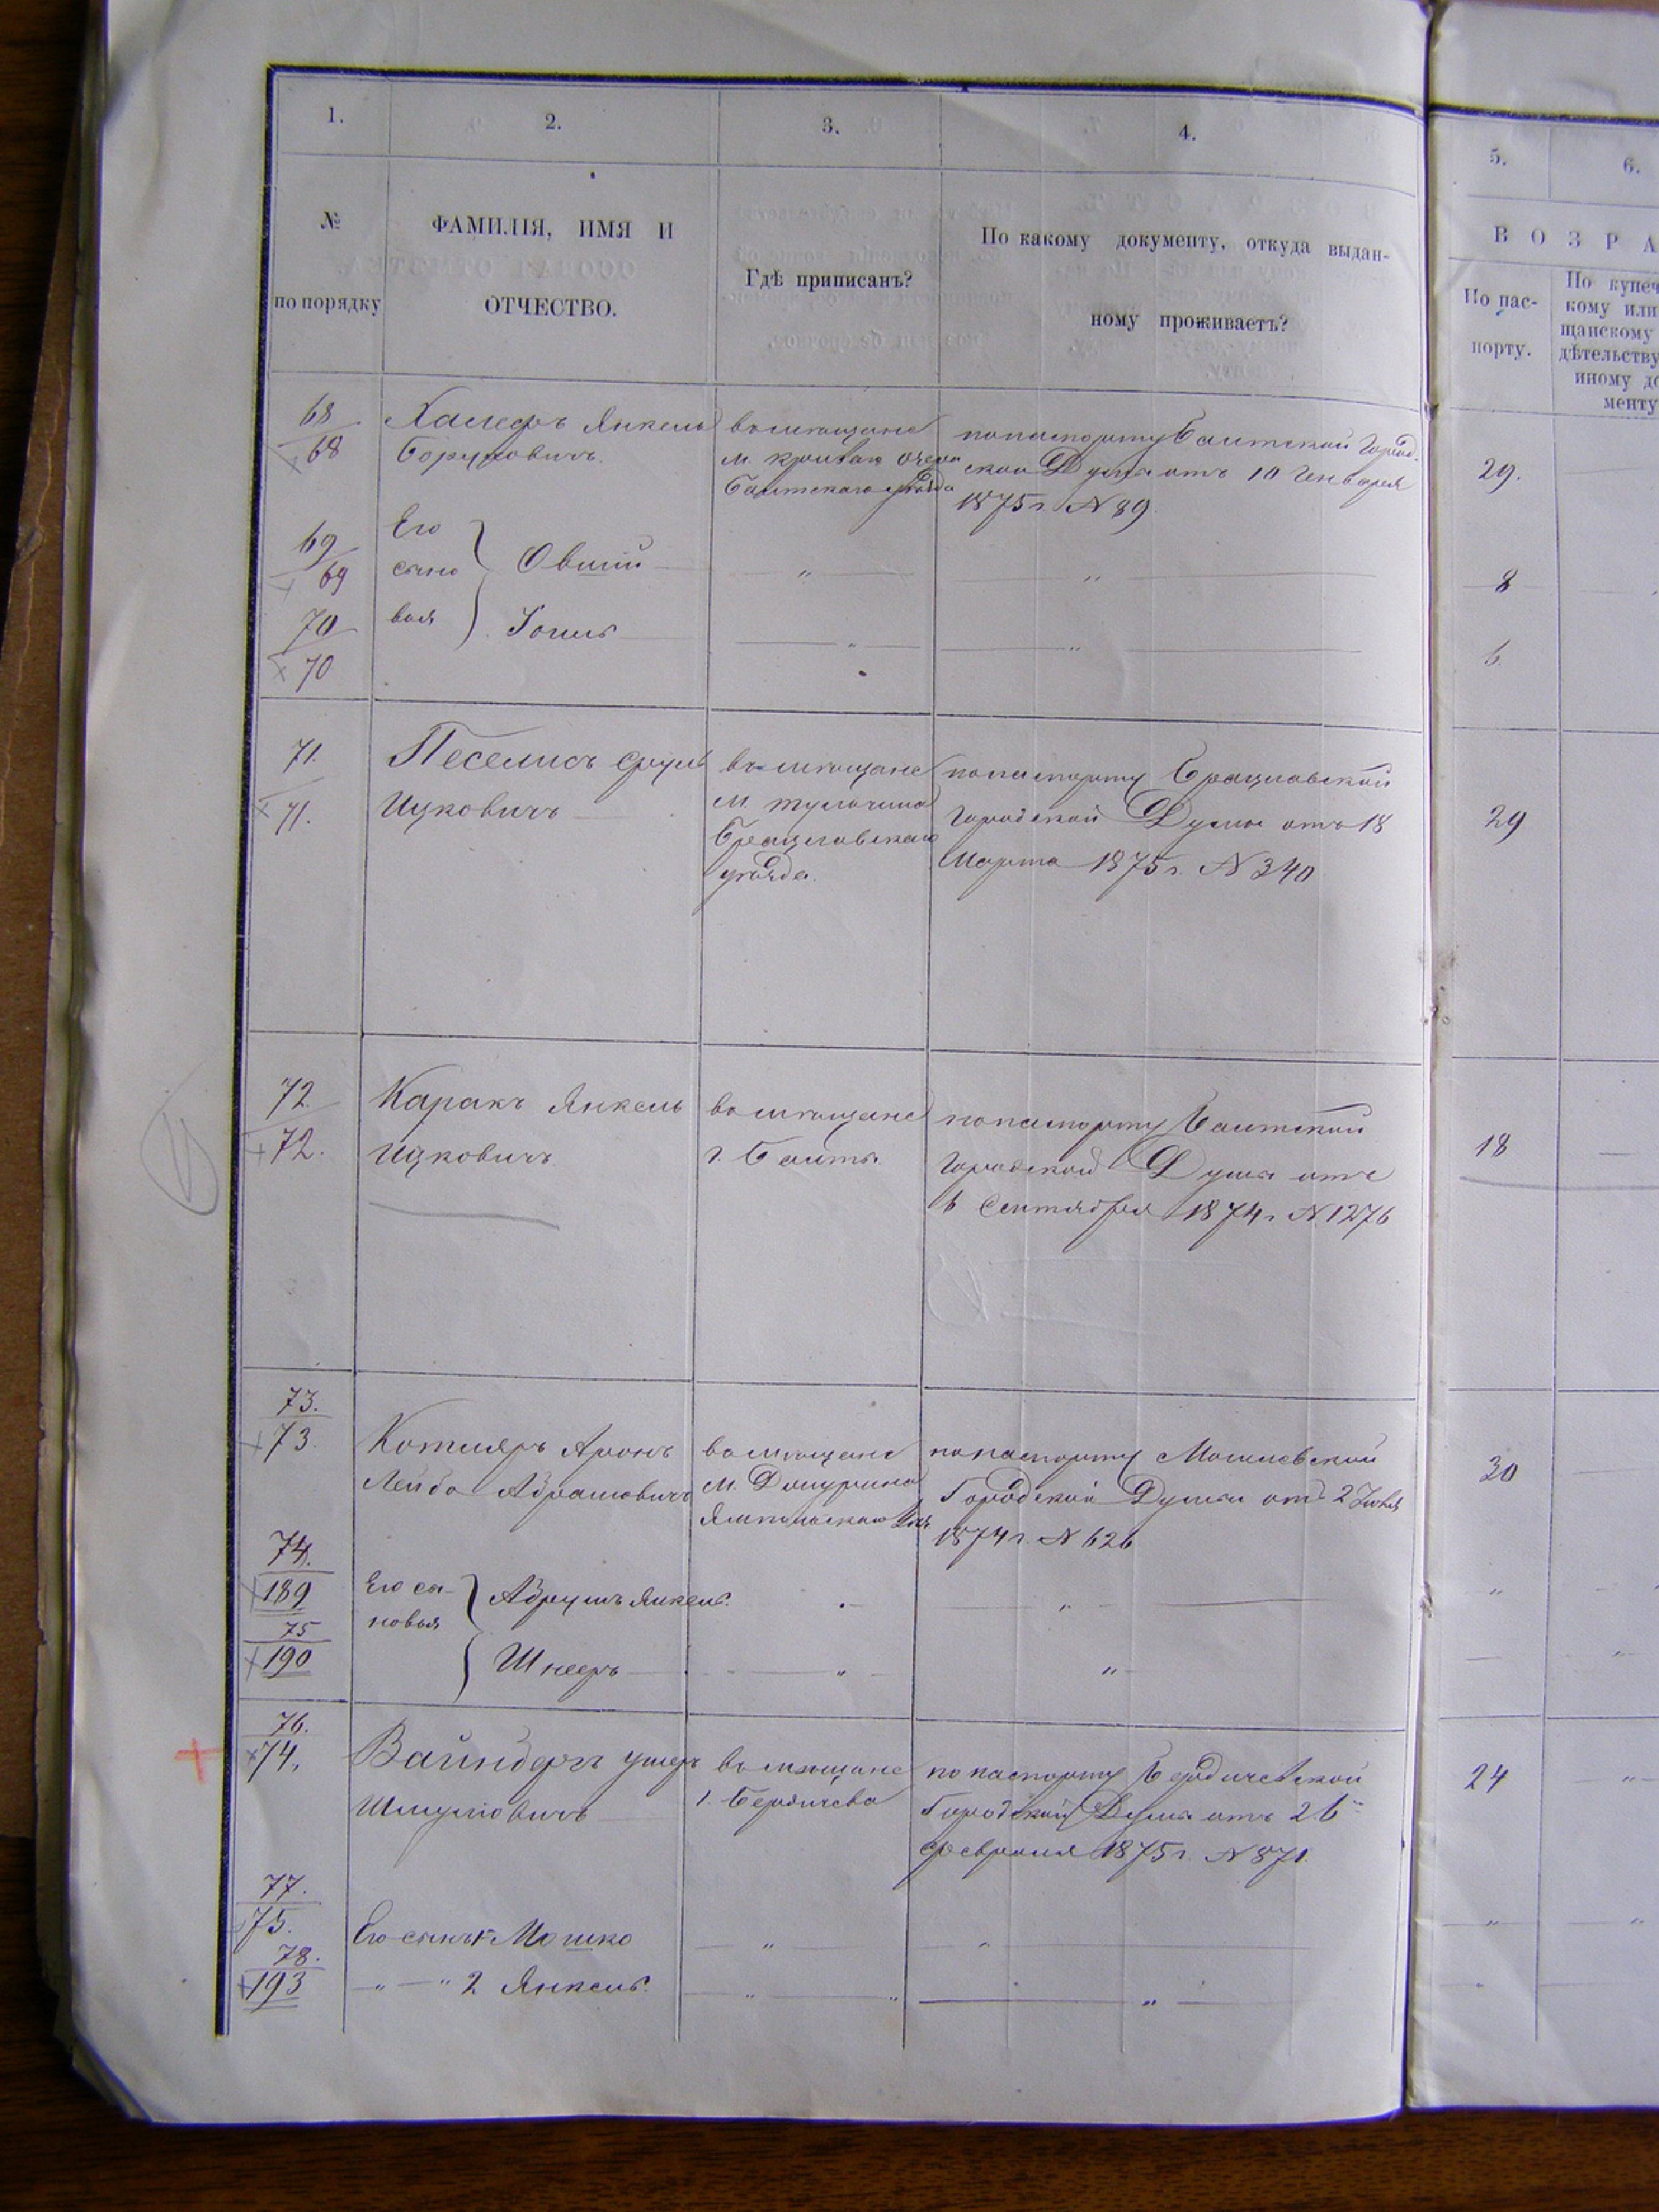 1. 2. 3. 4. 5. 6.
№ по порядку
ФАМИЛІЯ, ИМЯ И
ОТЧЕСТВО.
Гдѣ приписанъ?
По какому документу, откуда выдан-
ному проживаетъ?
ВОЗРА
По пас-
порту.
По купеч
кому или
щанскому
дѣтельству
иному до
менту
68
68
Янкель
Боруховичъ
въ мѣщане
м. Кривого Озера
Балтскаго уѣзда
по паспорту Балтской Город-
ской Думы отъ 10 Генваря
1875 г. № 89.
29.
69
69
Его
сыно
Овшій
"
"
8
70
70
вья
Іоиль
"
"
6.
71.
71.
Песелисъ Сруль
Ицковичъ
въ мѣщане
м. Тульчина
Брацлавскаго
уѣзда.
по паспорту Брацлавской
Городской Думы отъ 18
Марта 1875 г. № 340
29
72
72.
Каракъ Янкель
Ицковичъ
въ мѣщане
г. Балты
по паспорту Балтской
Городской Думы отъ
6 Сентября 1874 г. № 1276
18
73.
73
Котляръ Аронъ
Лейба Абрамовичъ
въ мѣщане
м.
Ямпольскаго
по паспорту Могилевской
Городской Думы отъ 2
1874 г. № 626
30
74.
189
Его сы-
Абрумъ Янкель.
"
"
75
190
новья
Шнееръ
"
"
76.
74.
Ушеръ
Шмулiовичъ
въ мѣщане
г. Бердичева
по паспорту Бердичевской
Городской Думы отъ 26
февраля 1875 г. № 871.
24
"
77.
75.
Его сынъ 1 Мошко
"
"
"
"
78.
193
" " 2 Янкель.
" "
"